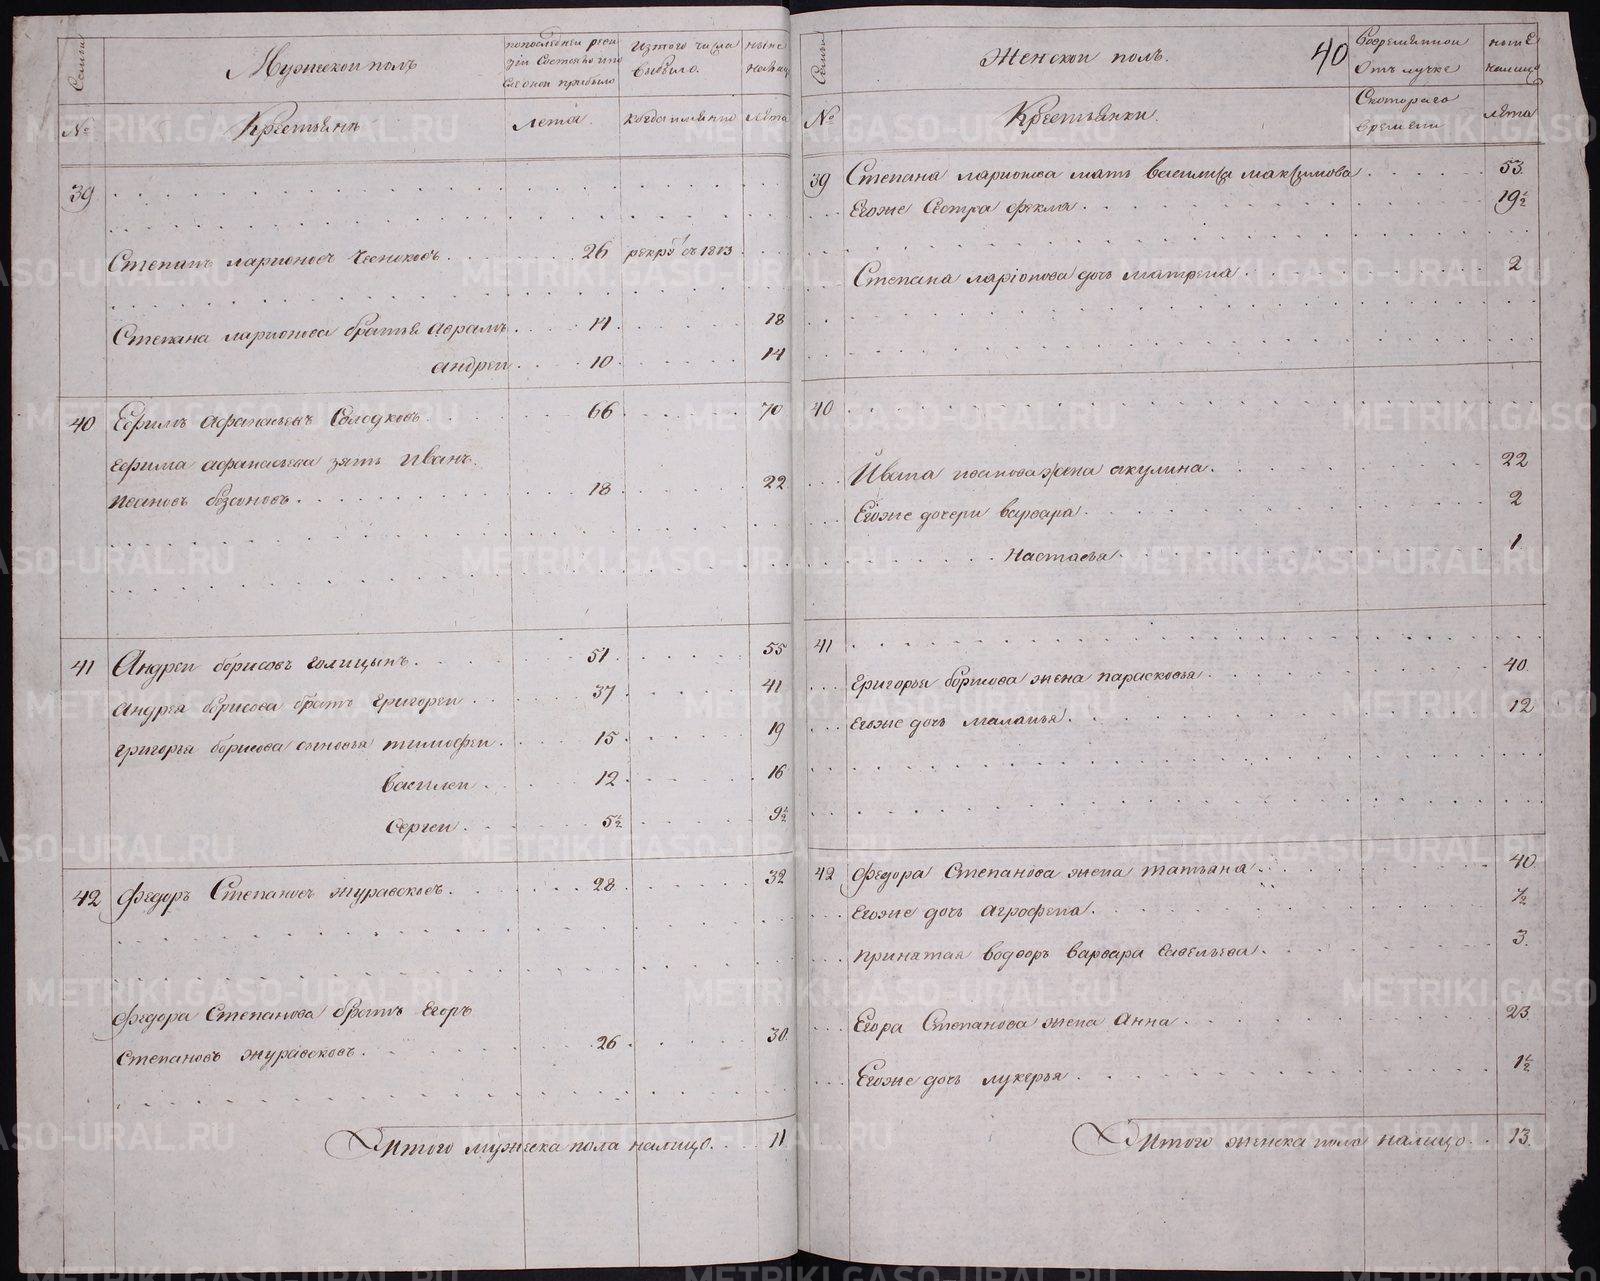 Семьи
Мужескои полъ
попоследнеи реви
зіи состояло ипо
слеонои прибыло
изтого числа
выбыло.
ныне
налицо
№
Крестьянъ
лета.
когдаимянно
лѣта
39
Степанъ ларионовъ Чесноковъ 26 рекру съ 1813
Степана ларионова братья аврамъ 14 18
андреи 10 14
40 Ефимъ афанасьевъ Солодковъ 66 70
ефима афанасьева зять Иванъ
ивановъ базановъ 18 22
41 Андреи борисовъ голицынъ 51 55
андрея борисова братъ григореи 37 41
григорья борисова сыновья тимофеи 15 19
василеи 12 16
сергеи 5½ 9½
42 Федоръ Степановъ журавковъ 28 32
федора Степанова братъ Егоръ
степановъ журавковъ 26 30
Итого мужеска пола налицо 11
Семьи
Женскои полъ.
40
Вовремяннои
отълучке
ныне
налицо
№
Крестьянки.
Скотораго
времени
лѣта
39 Степана ларионова мать василиса максимова 53
Егоже Сестра фекла 19½
Степана ларіонова дочь матрена 2
40
Ивана иванова жена акулина 22
Егоже дочери варвара 2
Настасья 1
41
григорья борисова жена парасковья 40
егоже дочь маланья 12
42 федора Степанова жена татьяна 40
егоже дочь аграфена ½
принятая водворъ варвара савельева 3
Егора Степанова жена анна 23
Егоже дочь лукерья 1½
Итого женска пола налицо 13
METRIKI.GASO-URAL.RU